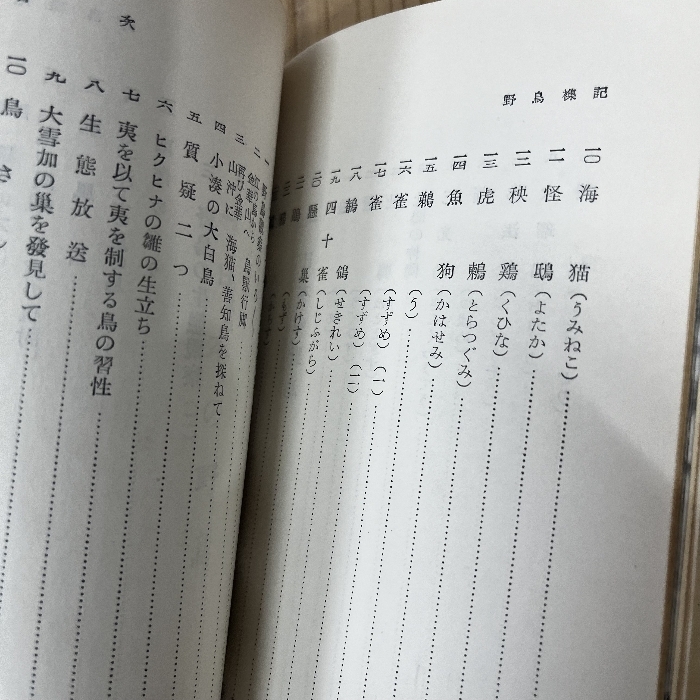 野鳥襍記
一〇 海猫(うみねこ)
一一 怪鴟(よたか)
一二 秧鶏(くひな)
一三 虎鶫(とらつぐみ)
一四 魚狗(かはせみ)
一五 鵜(う)
一六 雀(すずめ)(一)
一七 雀(すずめ)(二)
一八 鶺鴒(せきれい)
一九 四十雀(しじふがら)
二〇 懸巢(かけす)
次
海猫、善知鳥を探ねて
四 小湊の大白鳥
五 質疑二つ
六 ヒクヒナの雛の生立ち
七 夷を以て夷を制する鳥の習性
八 生態放送
九 大雪加の巢を發見して
一〇 鳥